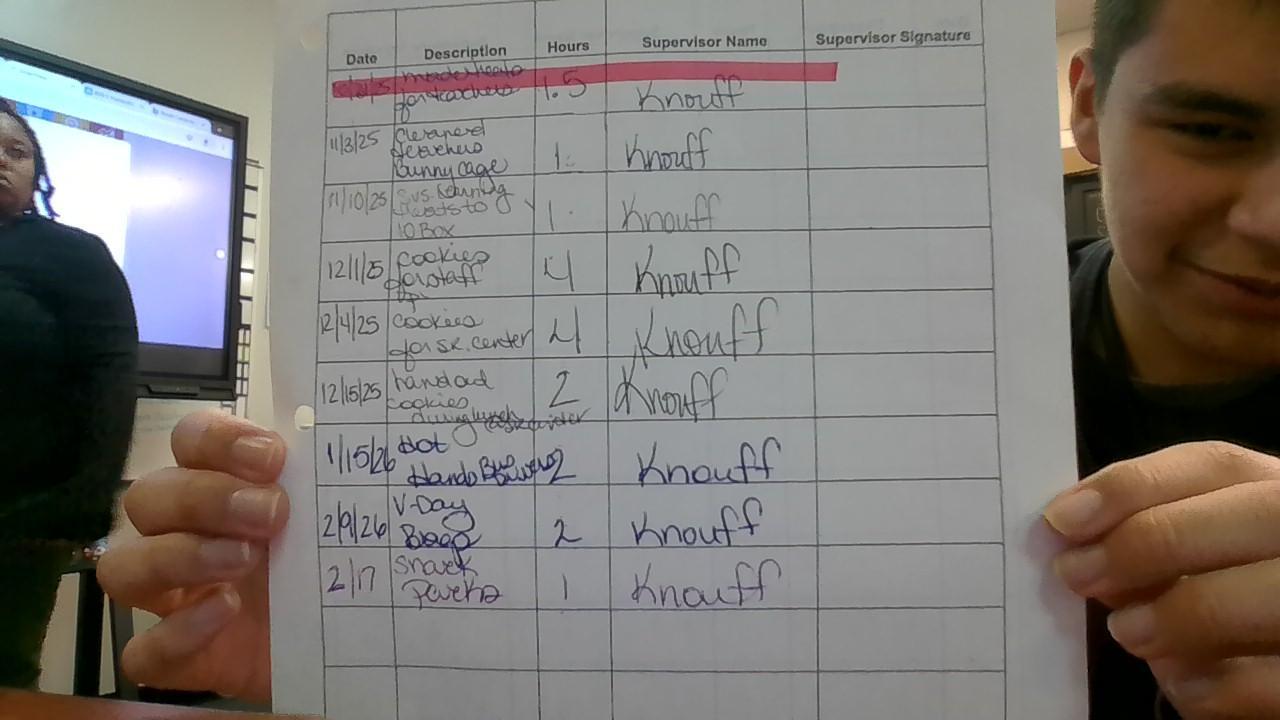 Date Description Hours Supervisor Name Supervisor Signature
for teachers 1.5 Knouff
11/3/25 Cleaned teachers bunny cage 1. Knouff
11/10/25 to 10 Box 1. Knouff
12/1/25 Cookies for staff 4 Knouff
12/4/25 cookies for sr. center 4 Knouff
12/15/25 handed cookies during lunch 2 Knouff
1/15/26 Hot Hands 2 Knouff
2/9/26 V-Day Bags 2 Knouff
2/17 Snack Packs 1 Knouff